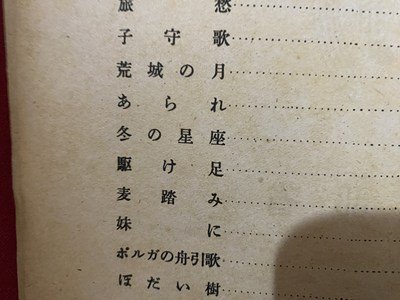 旅愁
子守歌
荒城の月
あられ
冬の星座
駆け足
麦踏み
妹に
ボルガの舟引歌
ぼだい樹